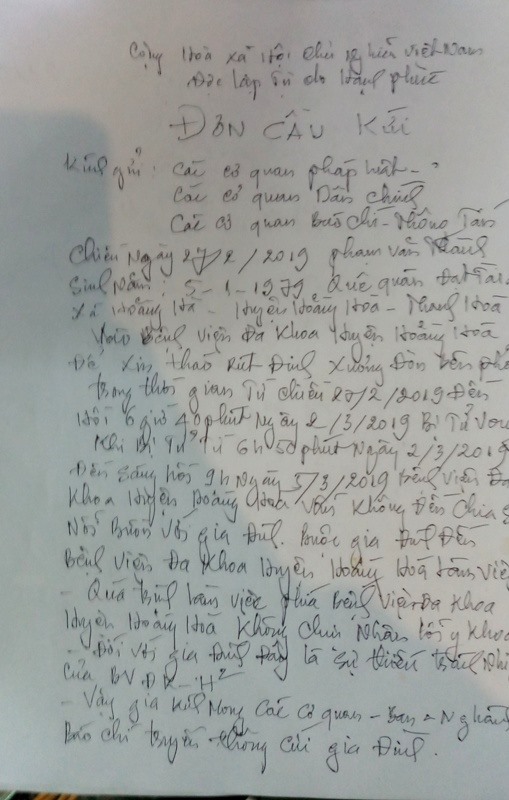 Cộng Hoà xã Hội chủ nghĩa việt Nam
Độc lập Tự do Hạnh phúc
ĐƠN CẦU KỨI
Kính gửi: Các cơ quan pháp luật -
Các cơ quan Dân chính
Các cơ quan Báo chí - Thông Tấn
Chiều Ngày 27/2/2019 phạm văn Thành
Sinh Năm: 5-1-1979 Quê quán Đạt Tài
xã Hoằng Hà - Huyện Hoằng Hoá - Thanh Hoá
Vào Bệnh viện Đa Khoa Huyện Hoằng Hoá
Để xin tháo rút Đinh xương Đòn bên phả
trong thời gian Từ chiều 27/2/2019 Đến
Hồi 6 giờ 40 phút Ngày 2/3/2019 Bị Tử Von
Khi Bị Tử Từ 6h50 phút Ngày 2/3/2019
Đến Sáng hồi 9h Ngày 5/3/2019 Bệnh viện Đa
Khoa Huyện Hoằng Hoá vẫn không Đến Chia s
Nỗi Buồn với gia Đình. Buộc gia Đình Đến
Bệnh viện Đa Khoa Huyện Hoằng Hoá làm việ
- Quá trình làm việc phía Bệnh viện Đa Khoa
Huyện Hoằng Hoá Không chịu Nhận lỗi y khoa
- Đối với gia Đình Đây là sự thiếu trách Nhi
của BV ĐK-H²
- Vậy gia Kính Mong Các cơ quan - Ban - Nghàn
Báo chí truyền thông cứi gia Đình.